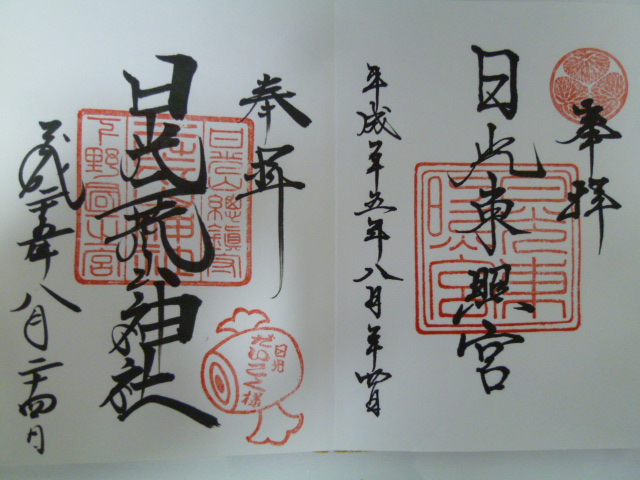 奉拝
日光東照宮
平成二十五年八月二十四日
奉拝
日光二荒山神社
平成二十五年八月二十四日
日光山總鎮守
下野國一宮
日光
だいこく様